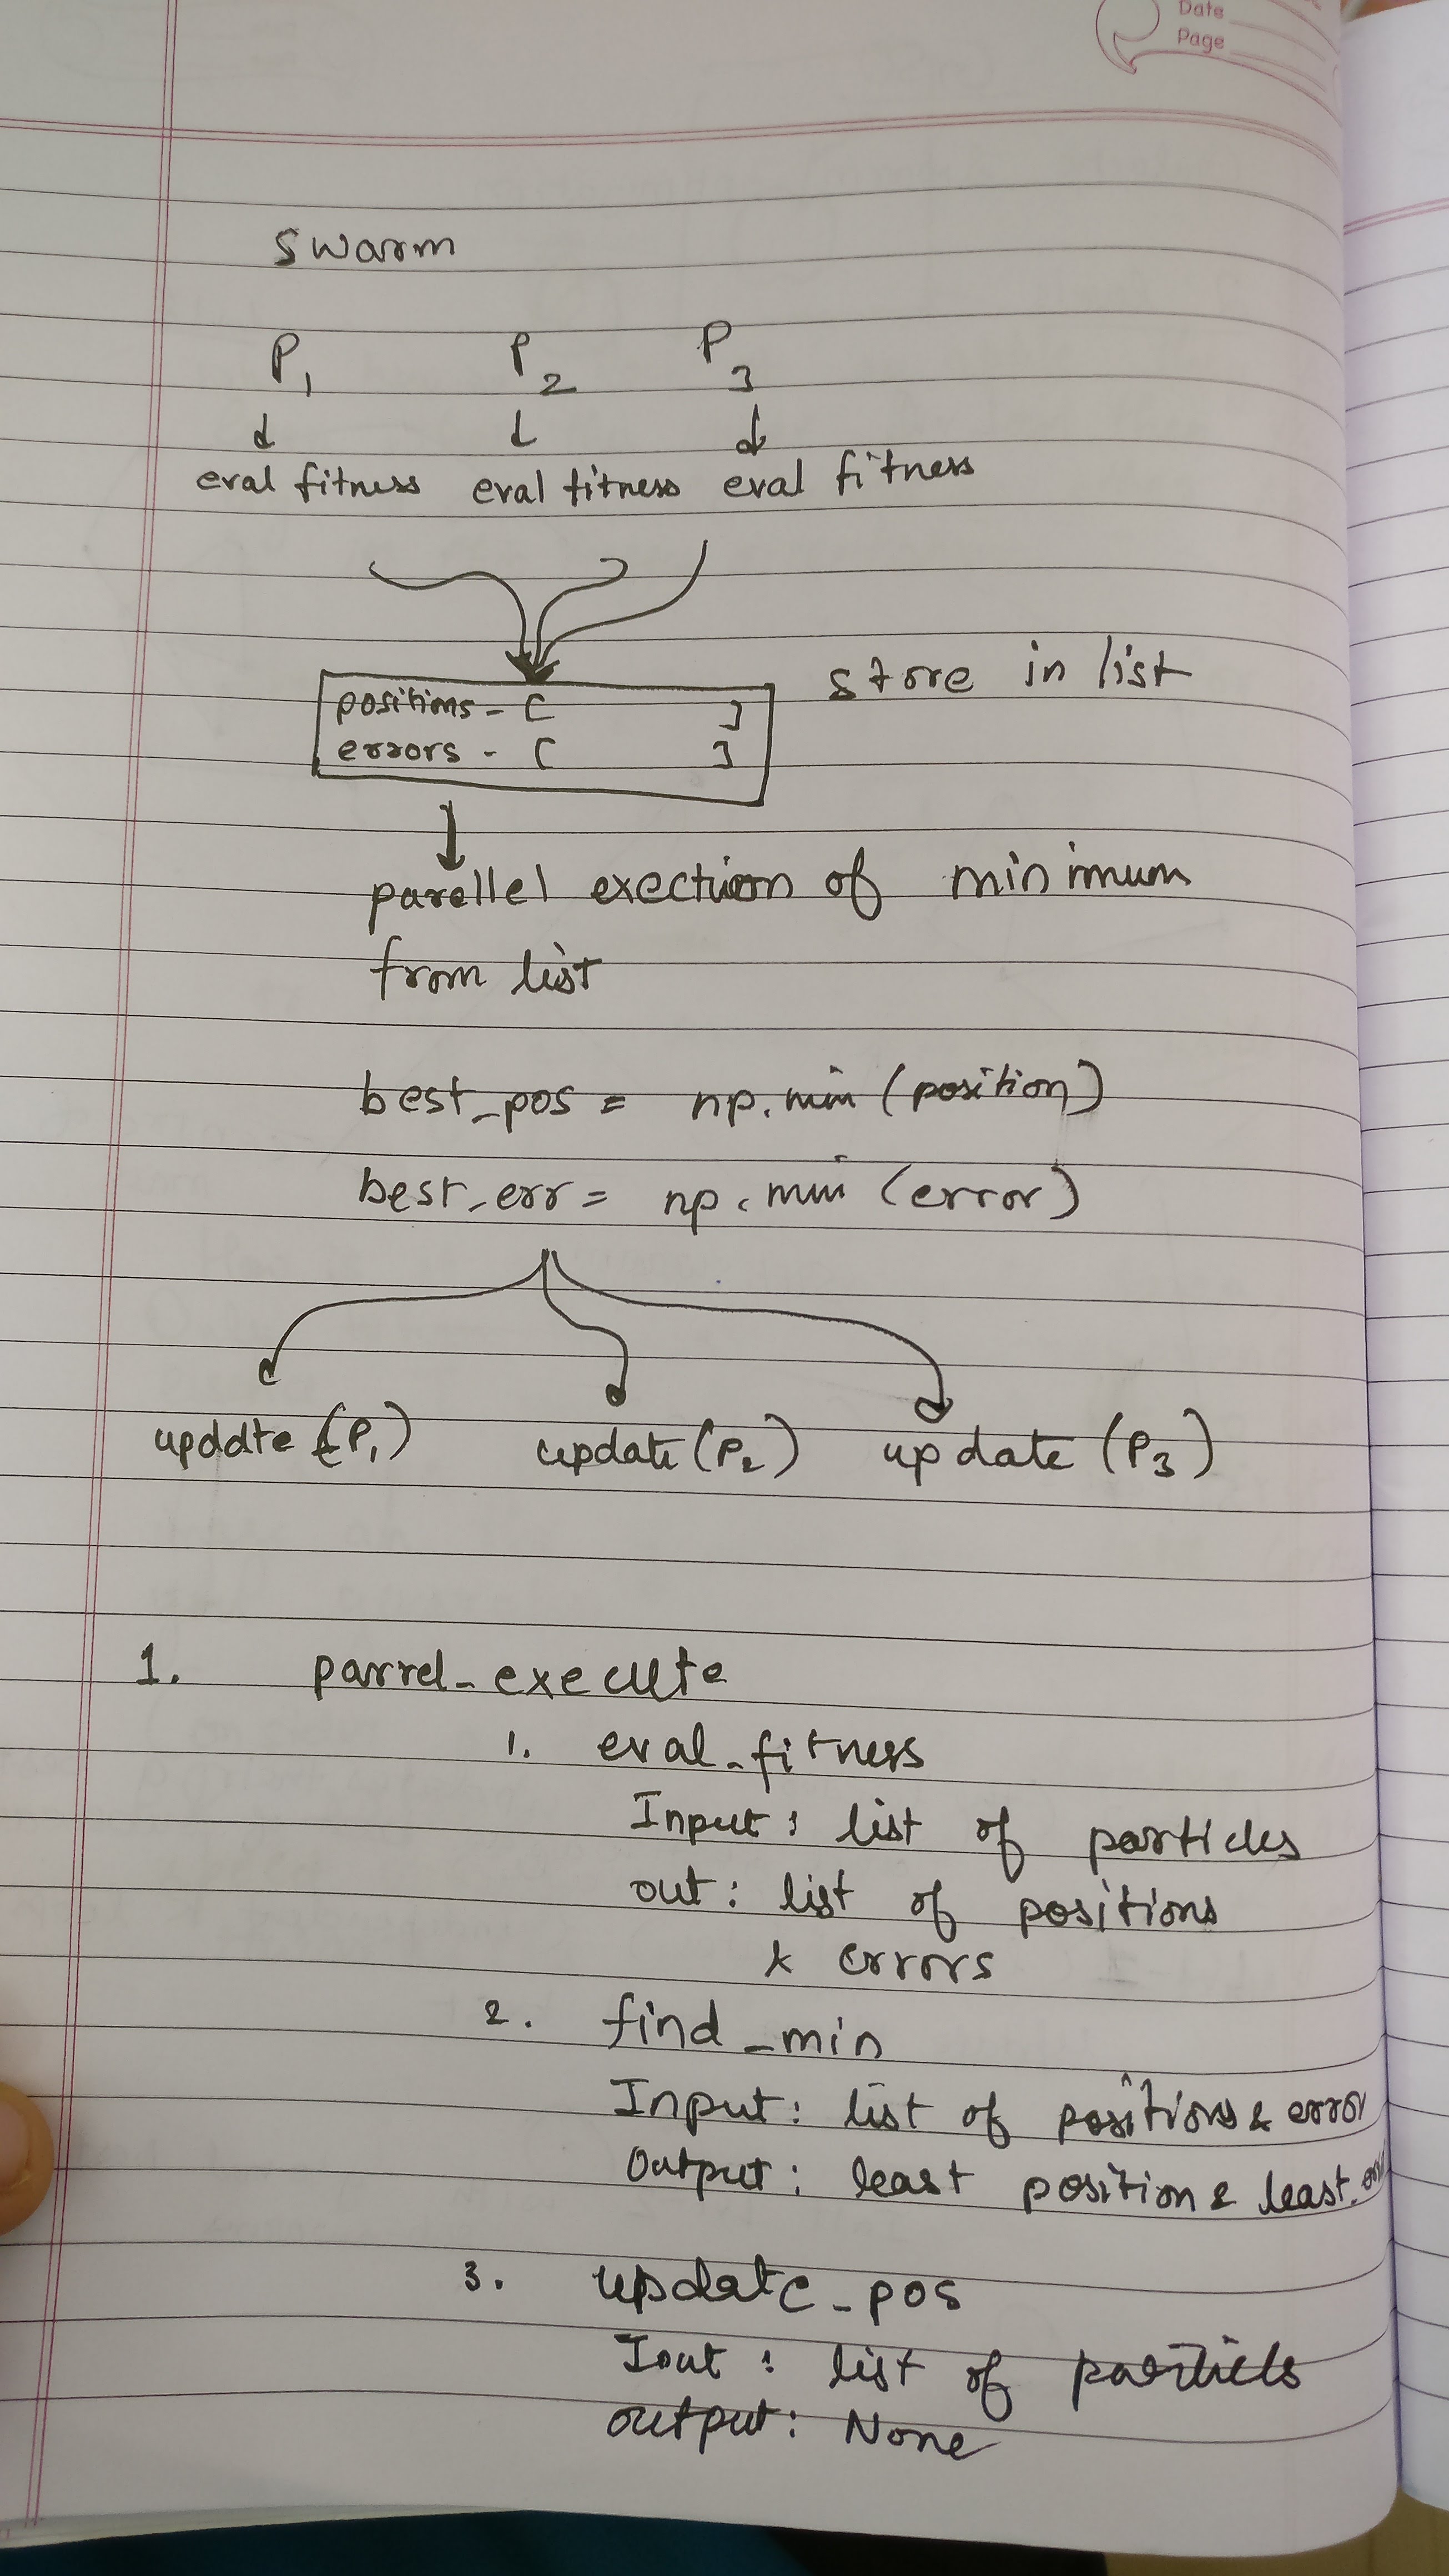 Date
Page
swarm
P1 P2 P3
eval fitness eval fitness eval fitness
store in list
positions - [ ]
errors - [ ]
parellel exection of minimum
from list
best_pos = np.min (position)
best_err = np.min (error)
update (P1) update (P2) update (P3)
1. parrel_execute
1. eval_fitness
Input : list of particles
out : list of positions
& errors
2. find_min
Input : list of positions & error
Output : least position & least
3. update_pos
Iout : list of particls
output : None